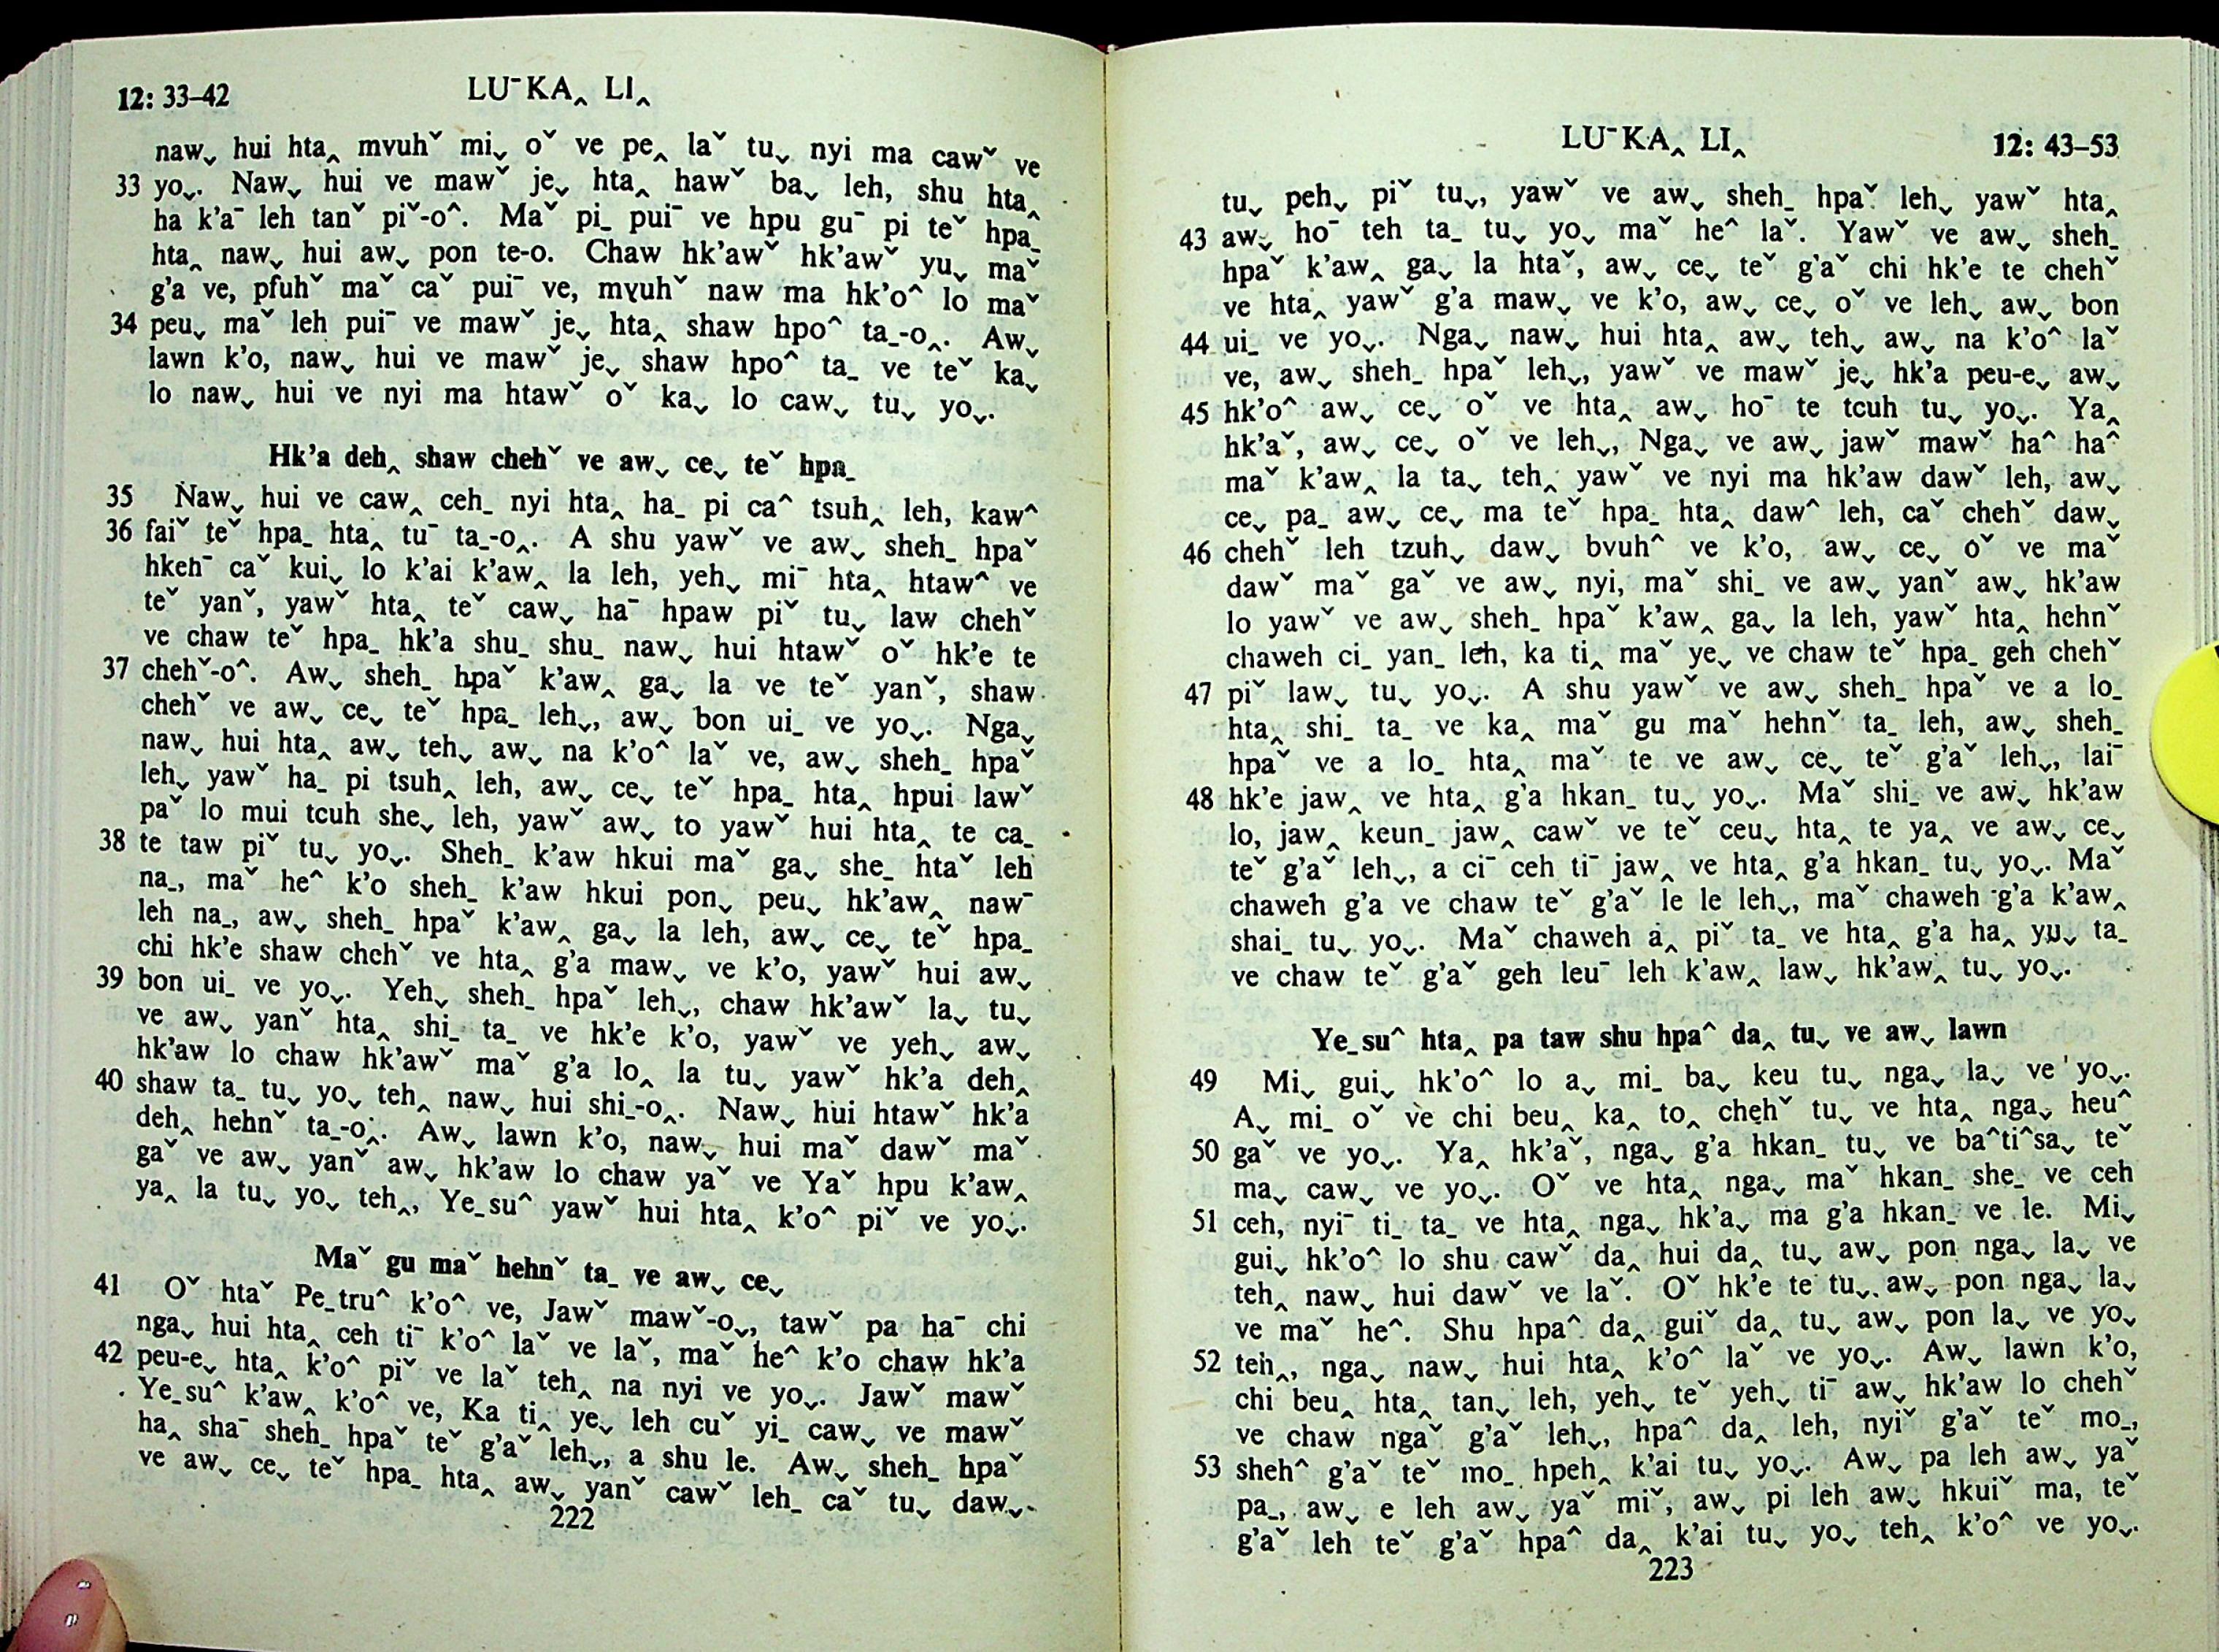 12: 33–42
LUˉKAꞈ LIꞈ
naw˯ hui htaꞈ mvuhˇ mi˯ oˇ ve peꞈ laˇ tu˯ nyi ma cawˇ ve
33 yo˯. Naw˯ hui ve mawˇ je˯ htaꞈ hawˇ ba˯ leh, shu htaꞈ
ha k’aˉ leh tanˇ piˇ-o^. Maˇ pi_ puiˉ ve hpu guˉ pi teˇ hpa_
htaꞈ naw˯ hui aw˯ pon te-o. Chaw hk’awˇ hk’awˇ yu˯ maˇ
g’a ve, pfuhˇ maˇ caˇ puiˉ ve, mvuhˇ naw ma hk’o^ lo maˇ
34 peu˯ maˇ leh puiˉ ve mawˇ je˯ htaꞈ shaw hpo^ ta_-oꞈ. Aw˯
lawn k’o, naw˯ hui ve mawˇ je˯ shaw hpo^ ta_ ve teˇ ka˯
lo naw˯ hui ve nyi ma htawˇ oˇ ka˯ lo caw˯ tu˯ yo˯.
Hk’a dehꞈ shaw chehˇ ve aw˯ ce˯ teˇ hpa_
35 Naw˯ hui ve cawꞈ ceh_ nyi htaꞈ ha_ pi ca^ tsuhꞈ leh, kaw^
36 faiˇ teˇ hpa_ htaꞈ tuˉ ta_-oꞈ. A shu yawˇ ve aw˯ sheh_ hpaˇ
hkehˉ caˇ kui˯ lo k’ai k’awꞈ la leh, yeh˯ miˉ htaꞈ htaw^ ve
teˇ yanˇ, yawˇ htaꞈ teˇ caw˯ haˉ hpaw piˇ tu˯ law chehˇ
ve chaw teˇ hpa_ hk’a shu_ shu_ naw˯ hui htawˇ oˇ hk’e te
37 chehˇ-o^. Aw˯ sheh_ hpaˇ k’awꞈ ga˯ la ve teˇ yanˇ, shaw
chehˇ ve aw˯ ce˯ teˇ hpa_ leh˯, aw˯ bon ui_ ve yo˯. Nga˯
naw˯ hui htaꞈ aw˯ teh˯ aw˯ na k’o^ laˇ ve, aw˯ sheh_ hpaˇ
leh˯ yawˇ ha_ pi tsuhꞈ leh, aw˯ ce˯ teˇ hpa_ htaꞈ hpui lawˇ
paˇ lo mui tcuh she˯ leh, yawˇ aw˯ to yawˇ hui htaꞈ te ca_
38 te taw piˇ tu˯ yo˯. Sheh_ k’aw hkui maˇ ga˯ she_ htaˇ leh
na_, maˇ he^ k’o sheh_ k’aw hkui pon˯ peu˯ hk’awꞈ nawˉ
leh na_, aw˯ sheh_ hpaˇ k’awꞈ ga˯ la leh, aw˯ ce˯ teˇ hpa_
chi hk’e shaw chehˇ ve htaꞈ g’a maw˯ ve k’o, yawˇ hui aw˯
39 bon ui_ ve yo˯. Yeh˯ sheh_ hpaˇ leh˯, chaw hk’awˇ la˯ tu˯
ve aw˯ yanˇ htaꞈ shi_ ta_ ve hk’e k’o, yawˇ ve yeh˯ aw˯
hk’aw lo chaw hk’awˇ maˇ g’a loꞈ la tu˯ yawˇ hk’a dehꞈ
40 shaw ta_ tu˯ yo˯ tehꞈ naw˯ hui shi_-oꞈ. Naw˯ hui htawˇ hk’a
dehꞈ hehnˇ ta_-oꞈ. Aw˯ lawn k’o, naw˯ hui maˇ dawˇ maˇ
gaˇ ve aw˯ yanˇ aw˯ hk’aw lo chaw yaˇ ve Yaˇ hpu k’awꞈ
yaꞈ la tu˯ yo˯ tehꞈ, Ye_su^ yawˇ hui htaꞈ k’o^ piˇ ve yo˯.
Maˇ gu maˇ hehnˇ ta_ ve aw˯ ce˯
41 Oˇ htaˇ Pe_tru^ k’o^ ve, Jawˇ mawˇ-o˯, tawˇ pa haˉ chi
nga˯ hui htaꞈ ceh tiˉ k’o^ laˇ ve laˇ, maˇ he^ k’o chaw hk’a
42 peu-e˯ htaꞈ k’o^ piˇ ve laˇ tehꞈ na nyi ve yo˯. Jawˇ mawˇ
Ye_su^ k’awꞈ k’o^ ve, Ka tiꞈ ye˯ leh cuˇ yi_ caw˯ ve mawˇ
haꞈ shaˉ sheh_ hpaˇ teˇ g’aˇ leh˯, a shu le. Aw˯ sheh_ hpaˇ
ve aw˯ ce˯ teˇ hpa_ htaꞈ aw˯ yanˇ cawˇ leh_ caˇ tu˯ daw˯
222
LUˉKAꞈ LIꞈ
12: 43–53
tu˯ peh˯ piˇ tu˯, yawˇ ve aw˯ sheh_ hpaˇ leh˯ yawˇ htaꞈ
43 aw˯ hoˉ teh ta_ tu˯ yo˯ maˇ he^ laˇ. Yawˇ ve aw˯ sheh_
hpaˇ k’awꞈ ga˯ la htaˇ, aw˯ ce˯ teˇ g’aˇ chi hk’e te chehˇ
ve htaꞈ yawˇ g’a maw˯ ve k’o, aw˯ ce˯ oˇ ve leh˯ aw˯ bon
44 ui_ ve yo˯. Nga˯ naw˯ hui htaꞈ aw˯ teh˯ aw˯ na k’o^ laˇ
ve, aw˯ sheh_ hpaˇ leh˯, yawˇ ve mawˇ je˯ hk’a peu-e˯ aw˯
45 hk’o^ aw˯ ce˯ oˇ ve htaꞈ aw˯ hoˉ te tcuh tu˯ yo˯. Yaꞈ
hk’aˇ, aw˯ ce˯ oˇ ve leh˯, Nga˯ ve aw˯ jawˇ mawˇ ha^ ha^
maˇ k’awꞈ la ta˯ tehꞈ yawˇ ve nyi ma hk’aw dawˇ leh, aw˯
ce˯ pa_ aw˯ ce˯ ma teˇ hpa_ htaꞈ daw^ leh, caˇ chehˇ daw˯
46 chehˇ leh tzuh˯ daw˯ bvuh^ ve k’o, aw˯ ce˯ oˇ ve maˇ
dawˇ maˇ gaˇ ve aw˯ nyi, maˇ shi_ ve aw˯ yanˇ aw˯ hk’aw
lo yawˇ ve aw˯ sheh_ hpaˇ k’awꞈ ga˯ la leh, yawˇ htaꞈ hehnˇ
chaweh ci_ yan_ leh, ka tiꞈ maˇ ye˯ ve chaw teˇ hpa_ geh chehˇ
47 piˇ law˯ tu˯ yo˯. A shu yawˇ ve aw˯ sheh_ hpaˇ ve a lo_
htaꞈ shi_ ta_ ve kaꞈ maˇ gu maˇ hehnˇ ta_ leh, aw˯ sheh_
hpaˇ ve a lo_ htaꞈ maˇ te ve aw˯ ce˯ teˇ g’aˇ leh˯, laiˉ
48 hk’e jawꞈ ve htaꞈ g’a hkan_ tu˯ yo˯. Maˇ shi_ ve aw˯ hk’aw
lo, jawꞈ keun_ jawꞈ cawˇ ve teˇ ceu˯ htaꞈ te yaꞈ ve aw˯ ce˯
teˇ g’aˇ leh˯, a ciˉ ceh tiˉ jawꞈ ve htaꞈ g’a hkan_ tu˯ yo˯. Maˇ
chaweh g’a ve chaw teˇ g’aˇ le le leh˯, maˇ chaweh g’a k’awꞈ
shai_ tu˯ yo˯. Maˇ chaweh aꞈ piˇ ta_ ve htaꞈ g’a haꞈ yu˯ ta_
ve chaw teˇ g’aˇ geh leuˉ leh k’awꞈ law˯ hk’awꞈ tu˯ yo˯.
Ye_su^ htaꞈ pa taw shu hpa^ daꞈ tu˯ ve aw˯ lawn
49 Mi˯ gui˯ hk’o^ lo aꞈ mi_ ba˯ keu tu˯ nga˯ la˯ ve yo˯.
Aꞈ mi_ oˇ ve chi beuꞈ kaꞈ toꞈ chehˇ tu˯ ve htaꞈ nga˯ heu^
50 gaˇ ve yo˯. Yaꞈ hk’aˇ, nga˯ g’a hkan_ tu˯ ve ba^ti^sa˯ teˇ
ma˯ caw˯ ve yo˯. Oˇ ve htaꞈ nga˯ maˇ hkan_ she_ ve ceh
51 ceh, nyiˉ ti_ ta_ ve htaꞈ nga˯ hk’a˯ ma g’a hkan_ ve le. Mi˯
gui˯ hk’o^ lo shu cawˇ daꞈ hui daꞈ tu˯ aw˯ pon nga˯ la˯ ve
tehꞈ naw˯ hui dawˇ ve laˇ. Oˇ hk’e te tu˯ aw˯ pon nga˯ la˯
ve maˇ he^. Shu hpa^ daꞈ guiˇ daꞈ tu˯ aw˯ pon la˯ ve yo˯
52 tehꞈ, nga˯ naw˯ hui htaꞈ k’o^ laˇ ve yo˯. Aw˯ lawn k’o,
chi beuꞈ htaꞈ tan˯ leh, yeh˯ teˇ yeh˯ tiˉ aw˯ hk’aw lo chehˇ
ve chaw ngaˇ g’aˇ leh˯, hpa^ daꞈ leh, nyiˇ g’aˇ teˇ mo_,
53 sheh^ g’aˇ teˇ mo_ hpehꞈ k’ai tu˯ yo˯. Aw˯ pa leh aw˯ yaˇ
pa_, aw˯ e leh aw˯ yaˇ miˇ, aw˯ pi leh aw˯ hkuiˇ ma, teˇ
g’aˇ leh teˇ g’aˇ hpa^ daꞈ k’ai tu˯ yo˯ tehꞈ k’o^ ve yo˯.
223